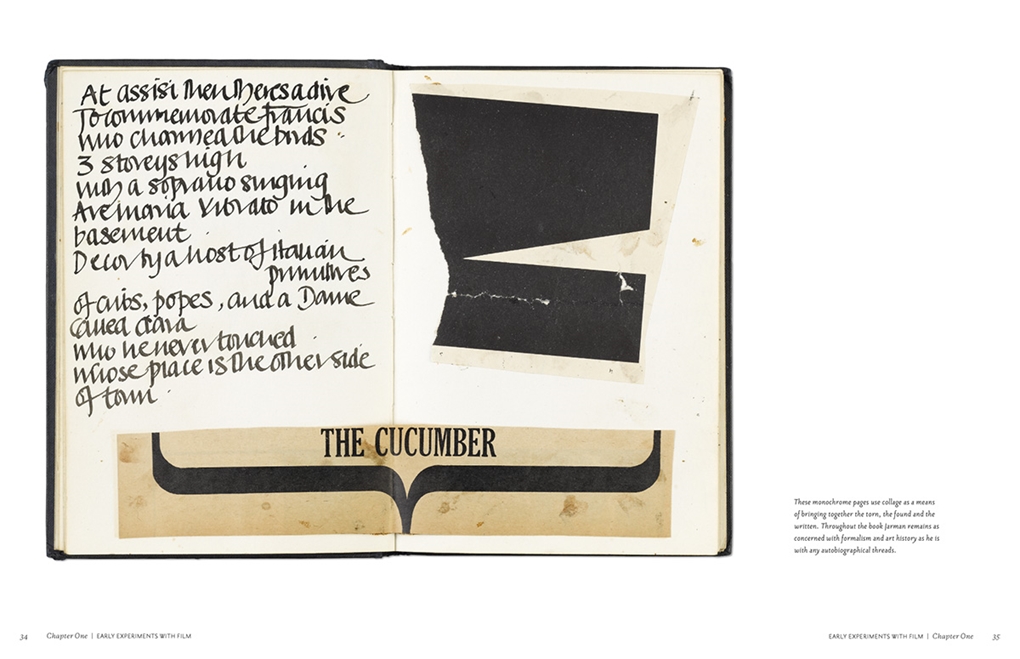 At assisi then theres a dive
To commemorate Francis
who charmed the birds
3 storeys high
with a soprano singing
Ave maria Vibrato in the
basement
Decor by a host of Italian
primitives
of cribs, popes, and a Dame
called clara
who he never touched
whose place is the other side
of town.
THE CUCUMBER
These monochrome pages use collage as a means
of bringing together the torn, the found and the
written. Throughout the book Jarman remains as
concerned with formalism and art history as he is
with any autobiographical threads.
34 Chapter One | EARLY EXPERIMENTS WITH FILM
EARLY EXPERIMENTS WITH FILM | Chapter One 35